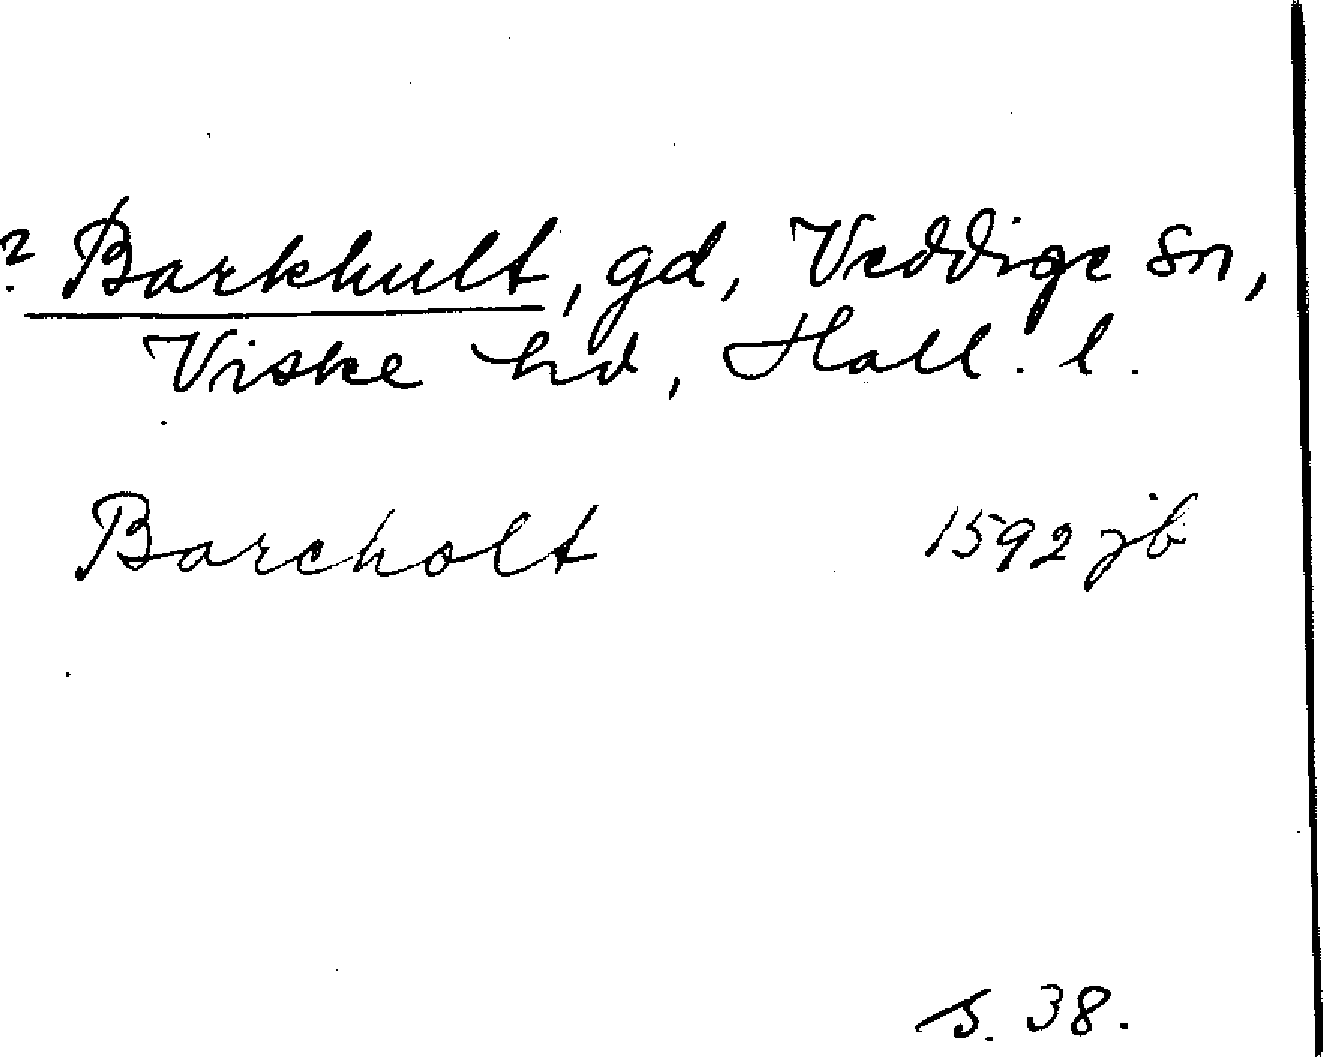 ? Barkhult, gd, Veddige sn,
Viske hd, Hall. l.
Barcholt 1592 jb
s. 38.